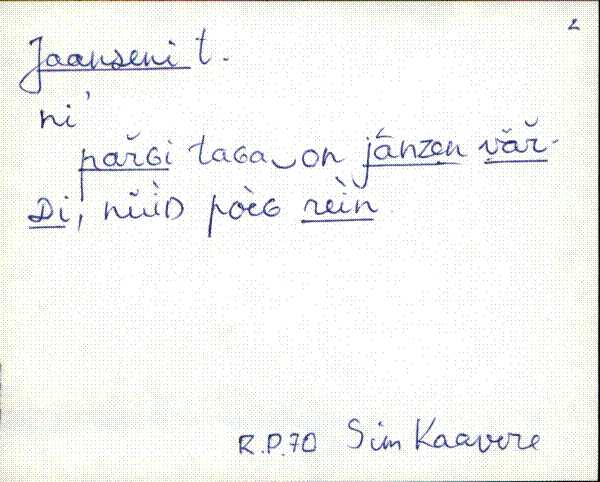 2
Jaanseni t.
ni'
pařGi taGa‿on jánzen vǎř-
Di, nǐùD pòèG rèìn
R.P.70 Sim Kaavere